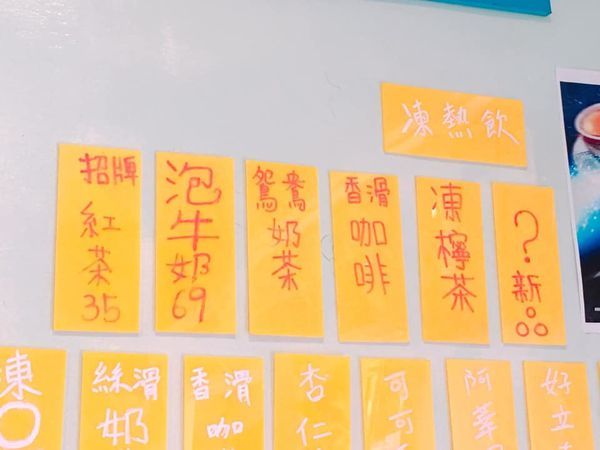 凍熱飲
招牌紅茶35
泡牛奶69
鴛鴦奶茶
香滑咖啡
凍檸茶
？新
凍
絲滑奶
香滑咖
杏仁
可可
阿華
好立